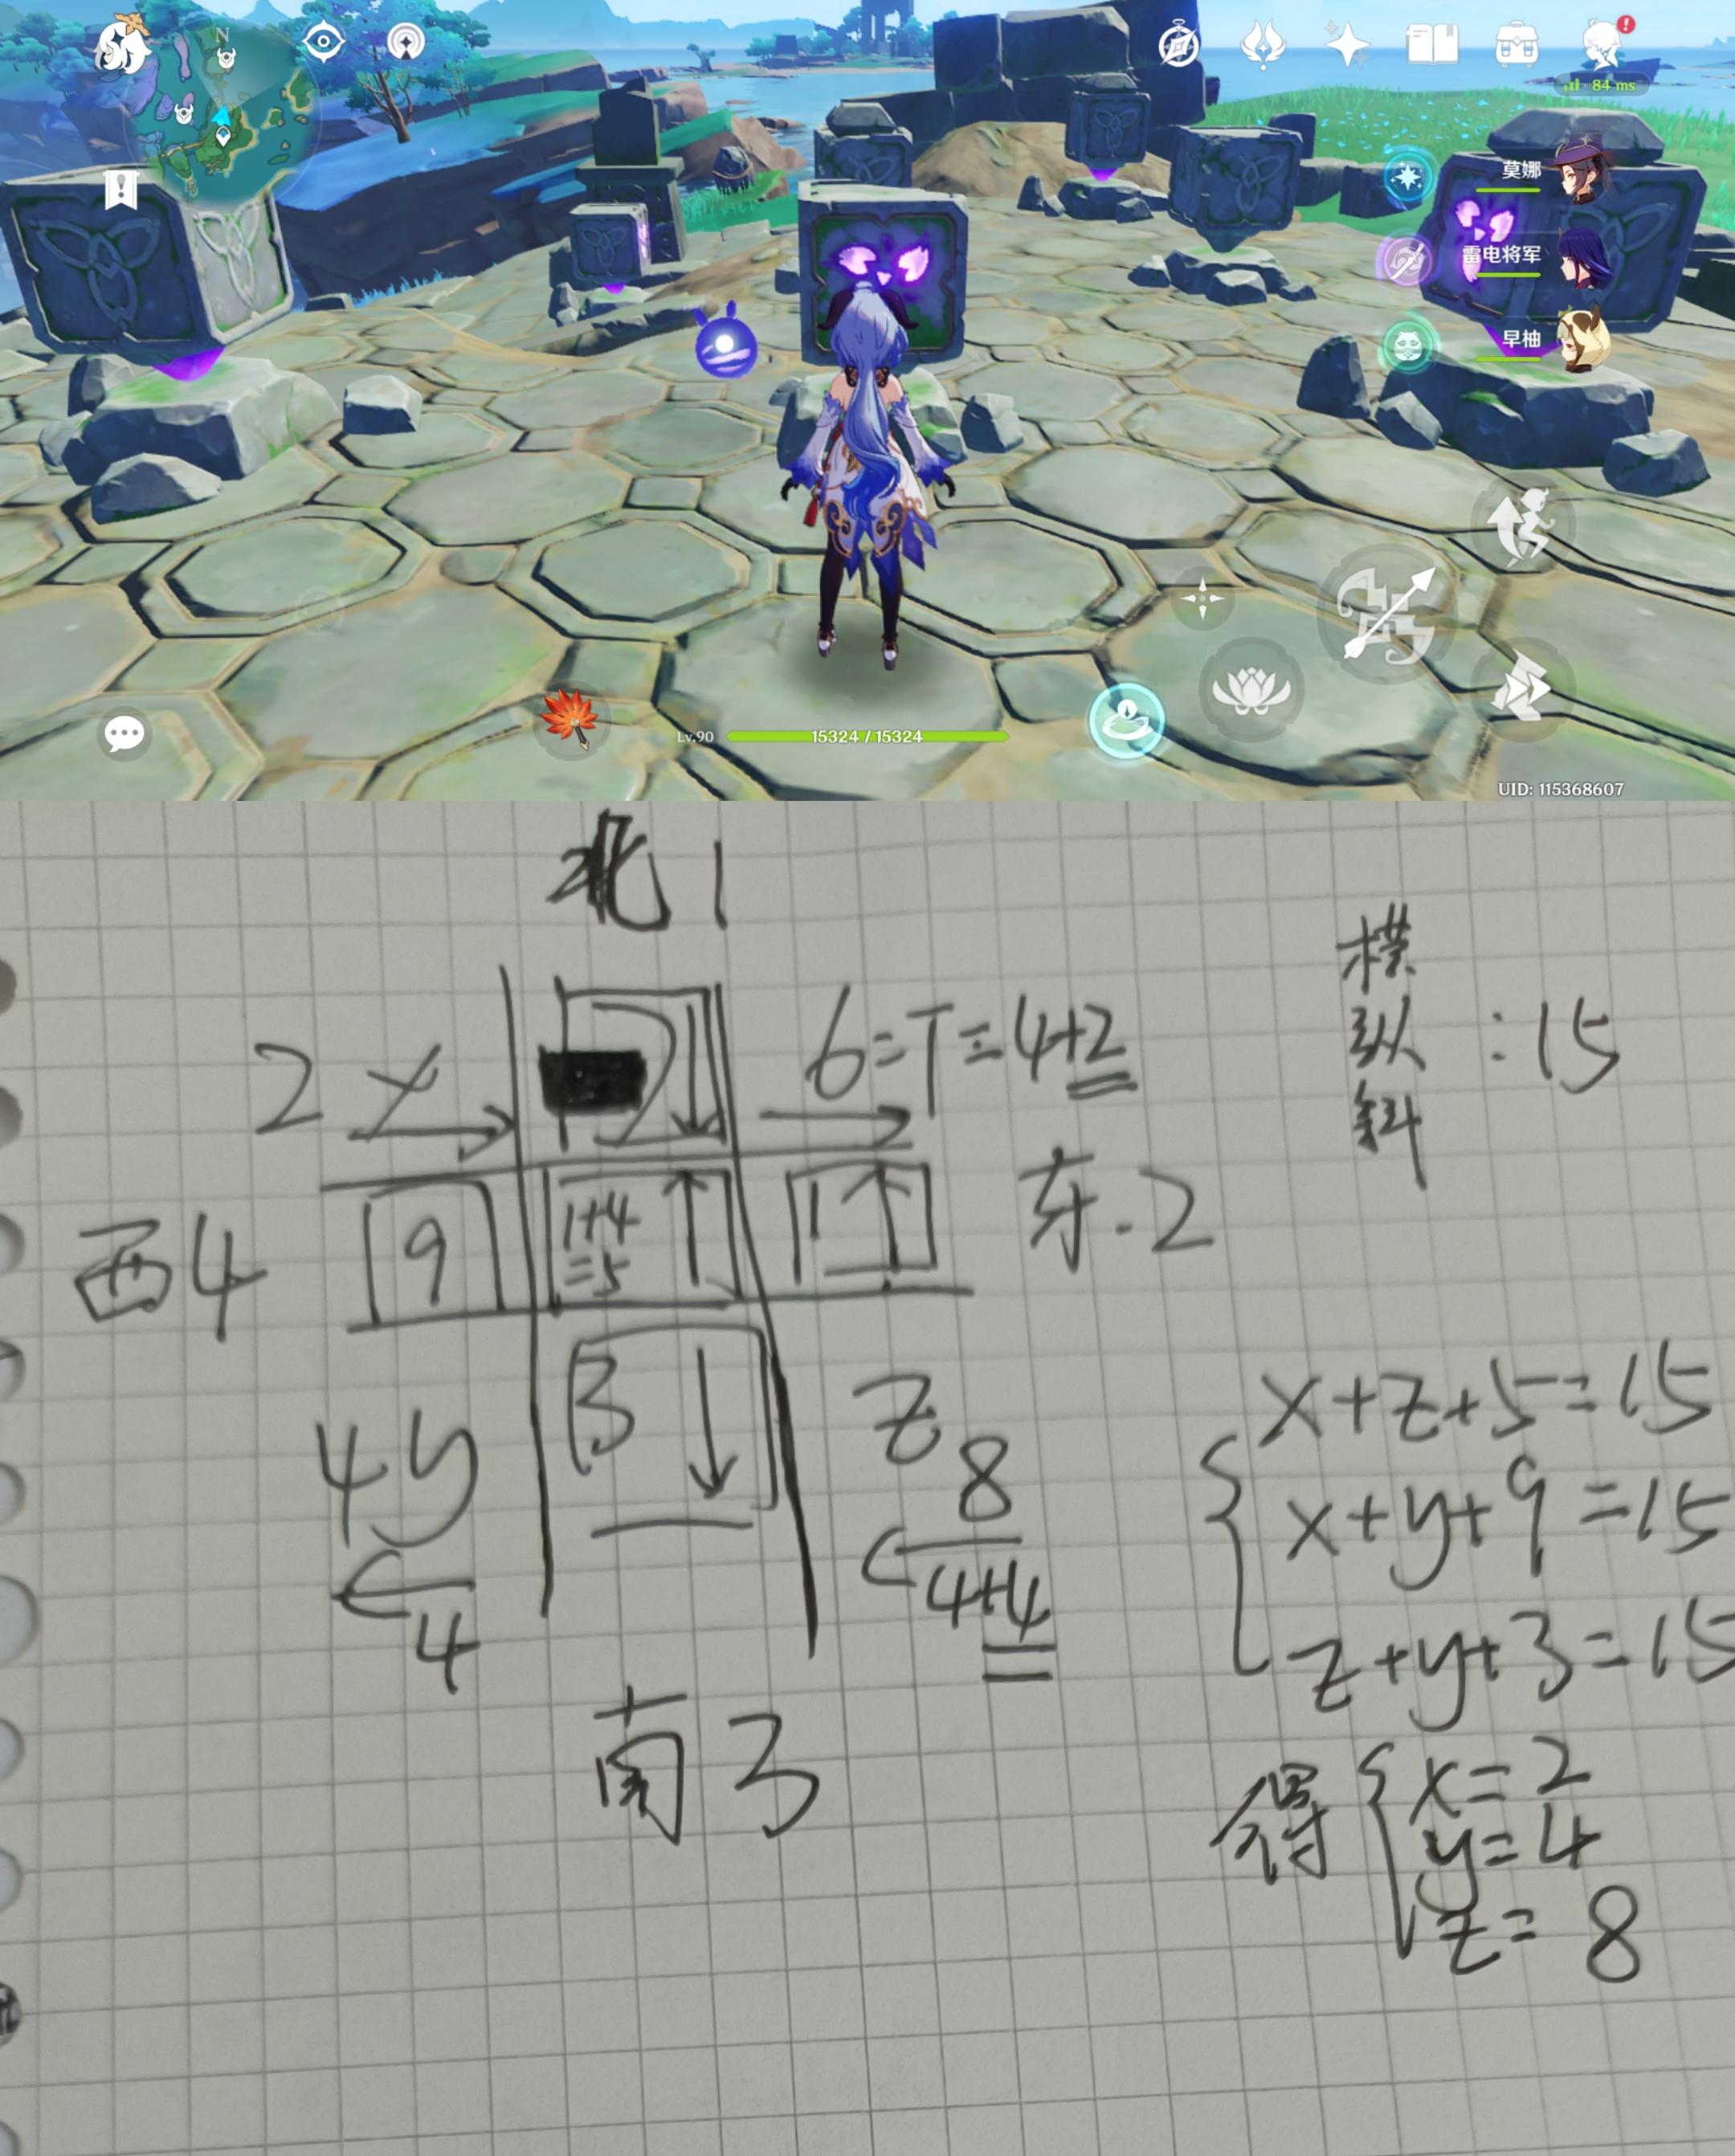 N
84 ms
莫娜
雷电将军
早柚
Lv.90
15324 / 15324
UID: 115368607
北 1
2 x
6 = T = 4+2
横
纵 : 15
斜
西 4
9
1+4
=5
1
东. 2
4 y
3
z
8
4
4+4
南 3
x+z+5=15
x+y+9=15
z+y+3=15
得
x=2
y=4
z=8